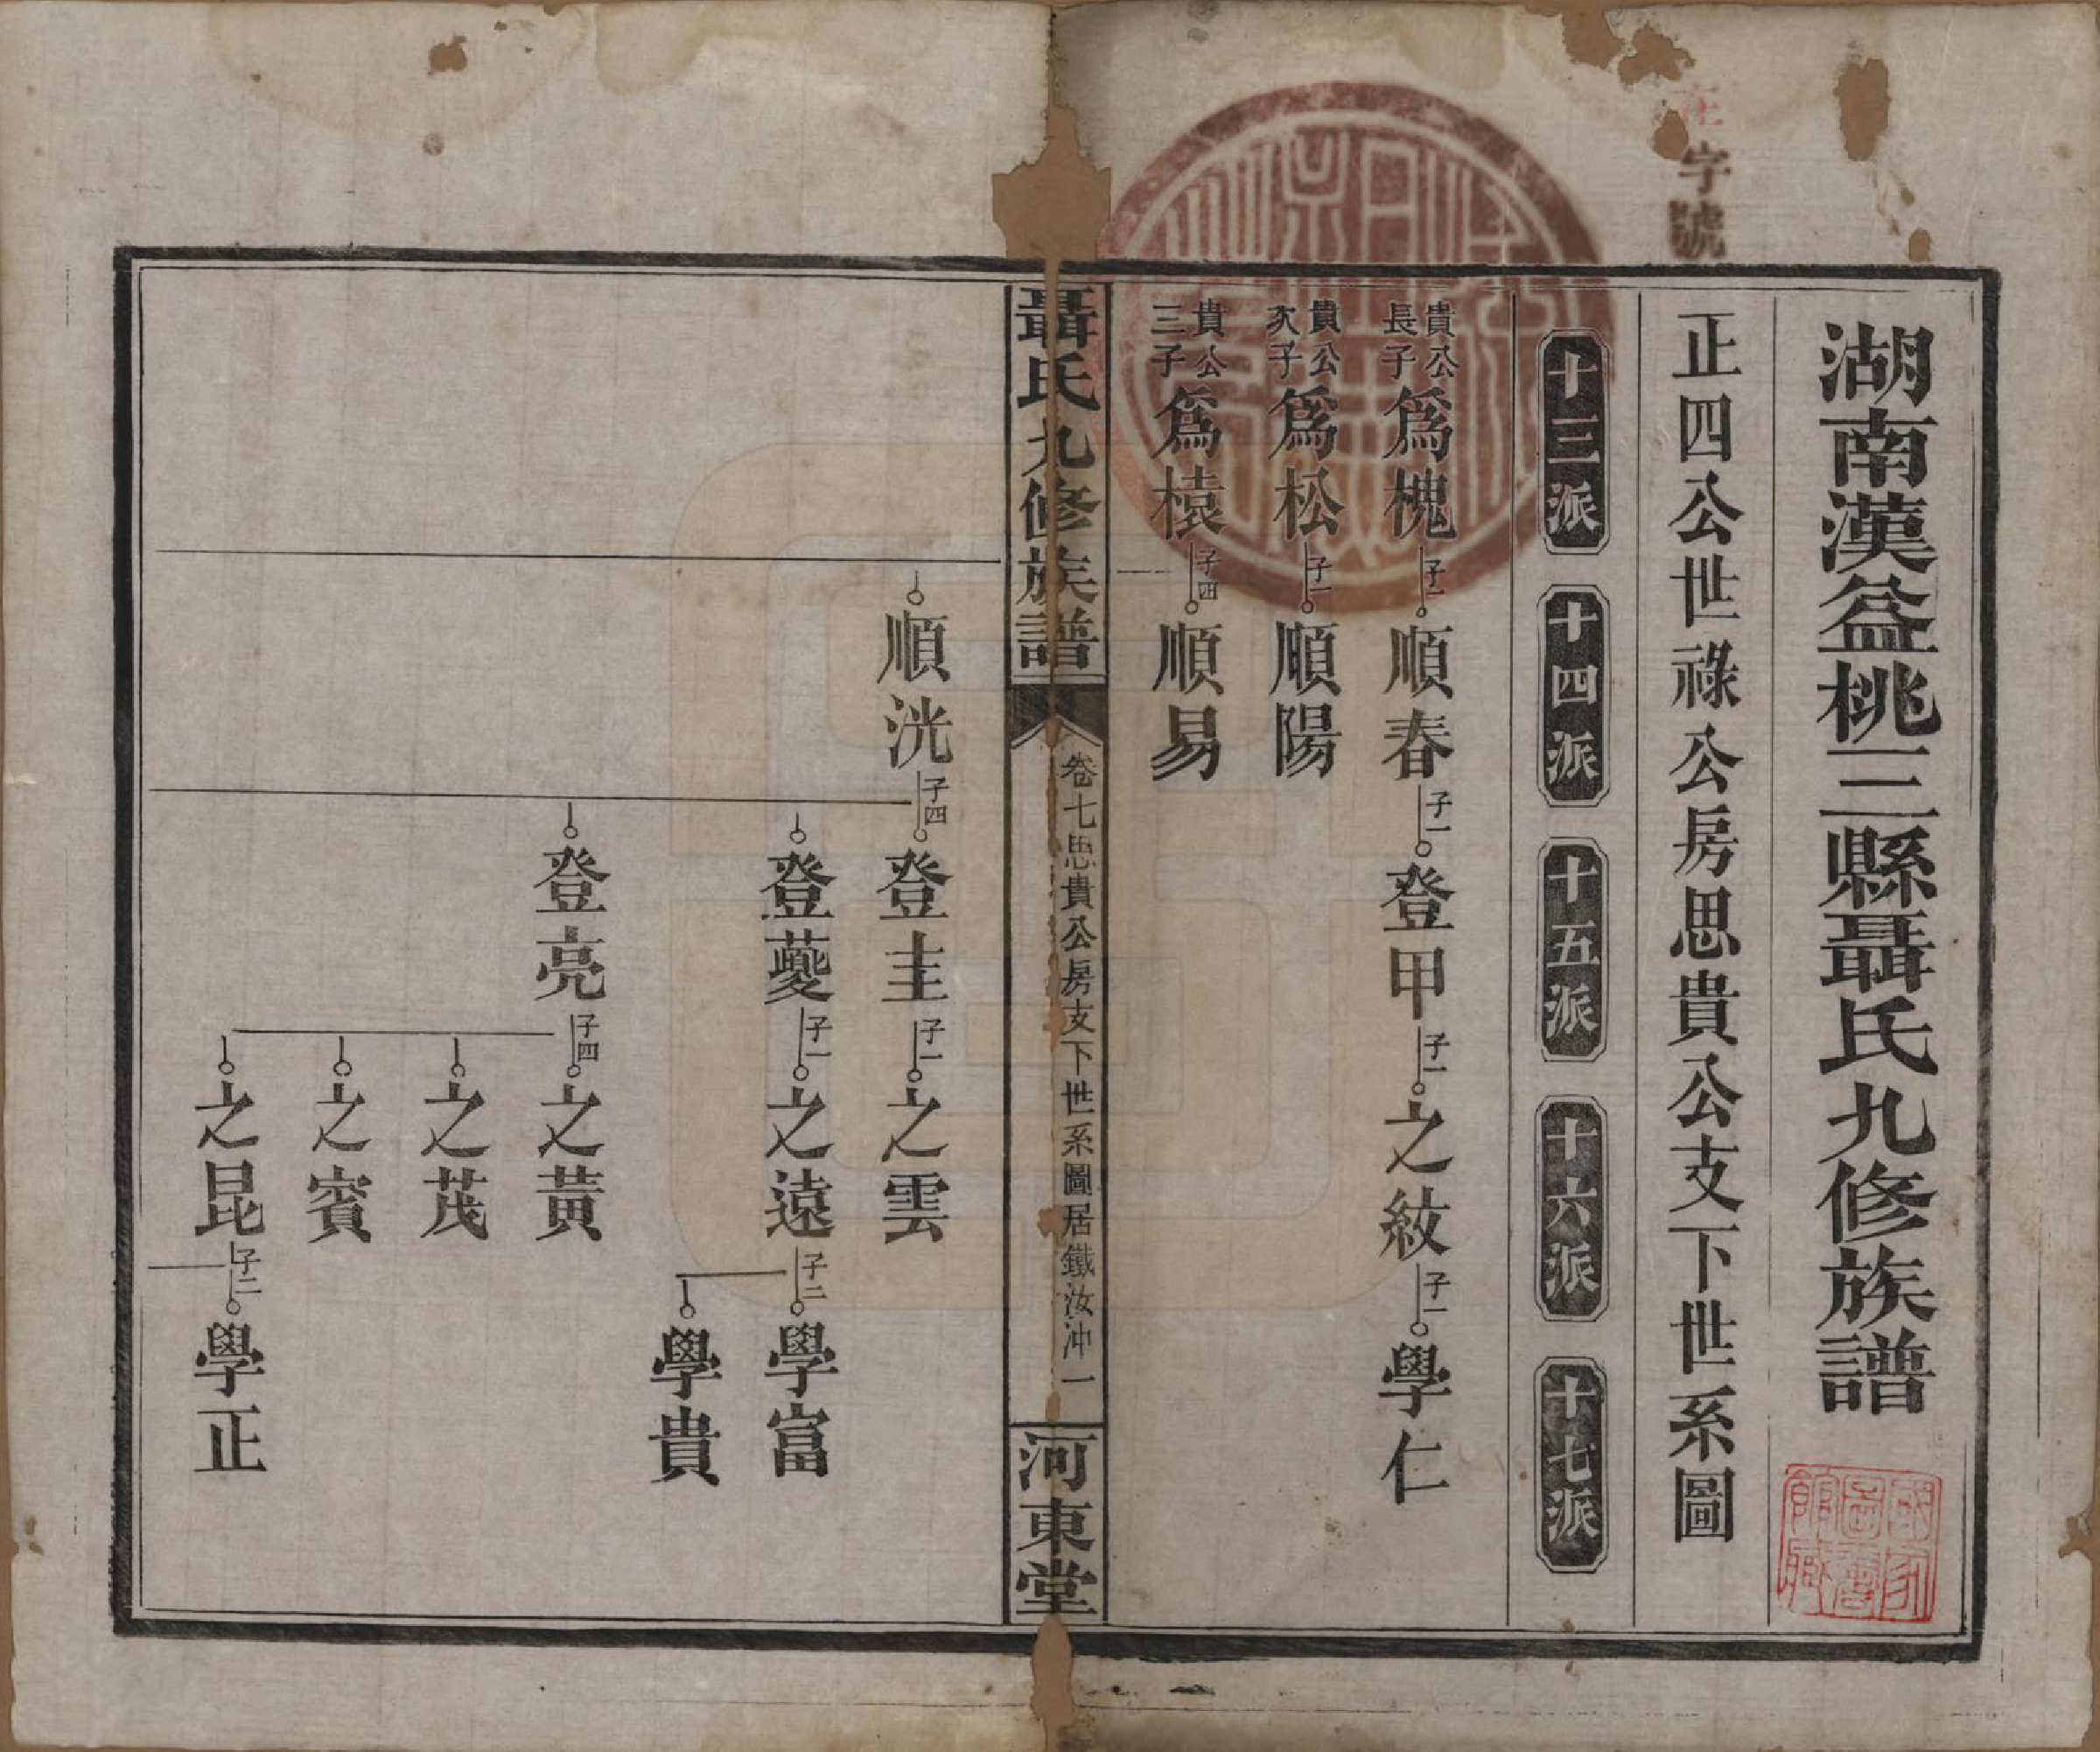 字號
湖南漢益桃三縣聶氏九修族譜
國家圖書館藏
正四公世祿公房思貴公支下世系圖
十三派 十四派 十五派 十六派 十七派
貴公長子爲槐 子一 順春 子一 登甲 子一 之紋 子一 學仁
貴公次子爲松 子一 順陽
貴公三子爲榬 子四 順易
聶氏九修族譜 卷七思貴公房支下世系圖居鐵汝冲 一 河東堂
順洸 子四 登圭 子一 之雲
登夔 子一 之遠 子二 學富
學貴
登亮 子四 之黃
之茂
之賓
之昆 子二 學正